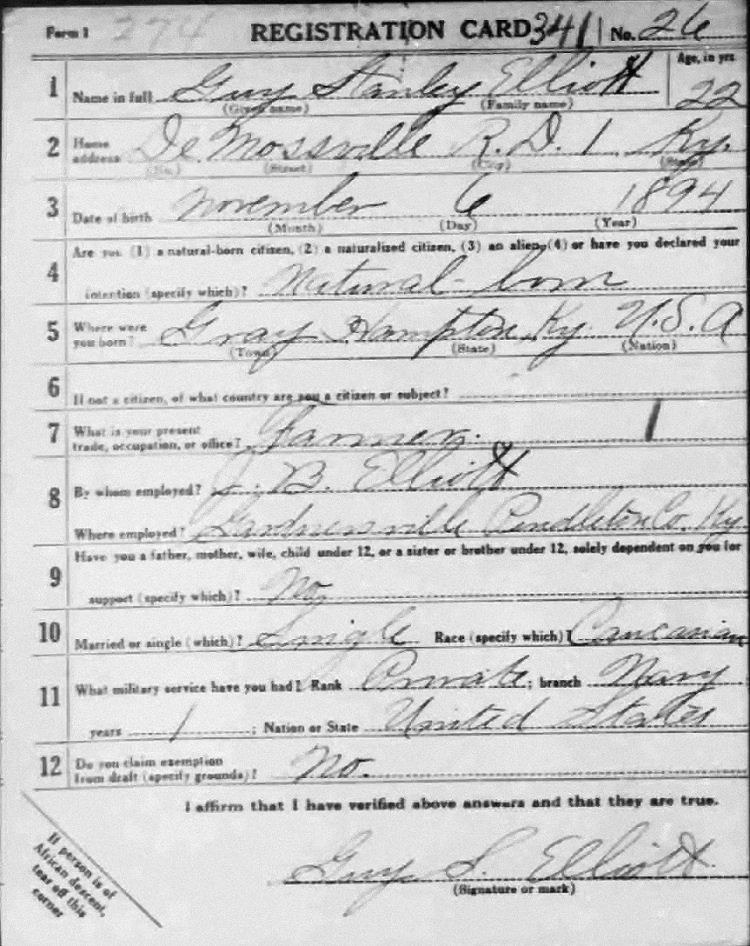 Form 1 274 REGISTRATION CARD 341 No. 26
1 Name in full Guy Stanley Elliott Age, in yrs 22
(Given name) (Family name)
2 Home address De Mossville R.D. 1 Ky.
(No.) (Street) (City) (State)
3 Date of birth November 6 1894
(Month) (Day) (Year)
4 Are you (1) a natural-born citizen, (2) a naturalized citizen, (3) an alien, (4) or have you declared your
intention (specify which)? Natural-born
5 Where were you born? Gray Hampton, Ky. U.S.A
(Town) (State) (Nation)
6 If not a citizen, of what country are you a citizen or subject?
7 What is your present trade, occupation, or office? Farmer. 1
8 By whom employed? J. B. Elliott
Where employed? Gardnersville Pendleton Co. Ky.
9 Have you a father, mother, wife, child under 12, or a sister or brother under 12, solely dependent on you for
support (specify which)? No
10 Married or single (which)? Single Race (specify which)? Caucasian
11 What military service have you had? Rank Private; branch Navy
years 1; Nation or State United States
12 Do you claim exemption from draft (specify grounds)? No.
I affirm that I have verified above answers and that they are true.
Guy S. Elliott
(Signature or mark)
If person is of
African descent,
tear off this
corner